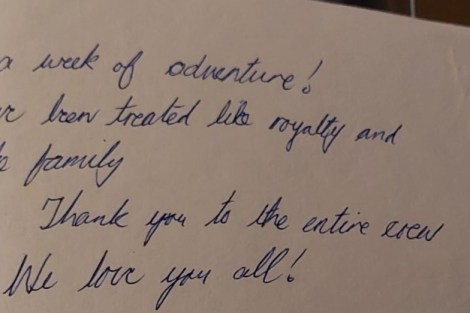 a week of adventure!
been treated like royalty and
family
Thank you to the entire crew
We love you all!